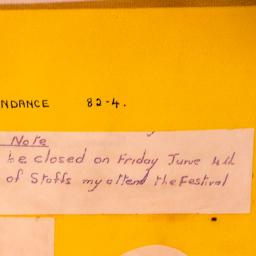 NDANCE 82-4.
Note
be closed on Friday June 4th
of Staffs my attend the Festival